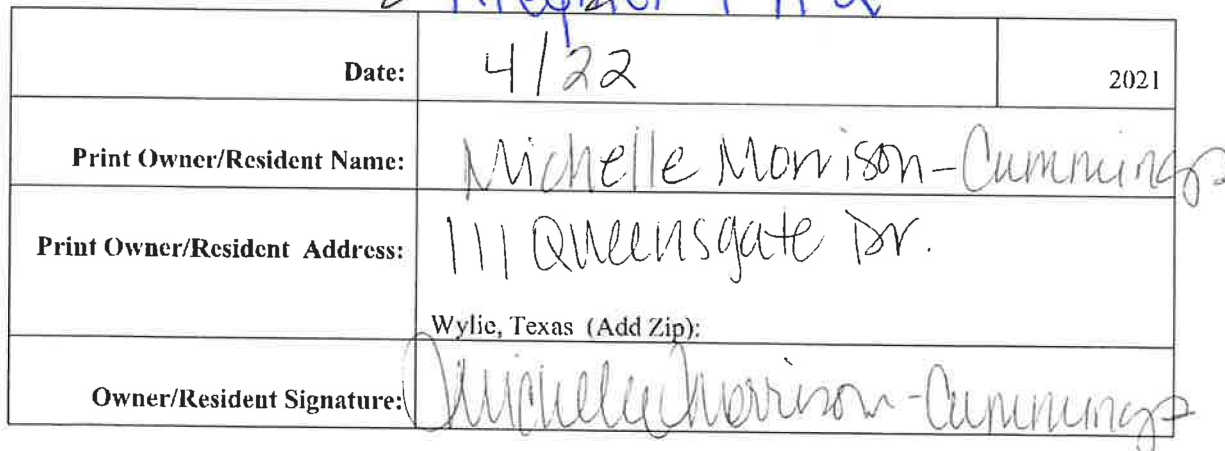 Date: 4/22 2021
Print Owner/Resident Name: Michelle Morrison-Cummings
Print Owner/Resident Address: 111 Queensgate Dr.
Wylie, Texas (Add Zip):
Owner/Resident Signature: Michelle Morrison-Cummings